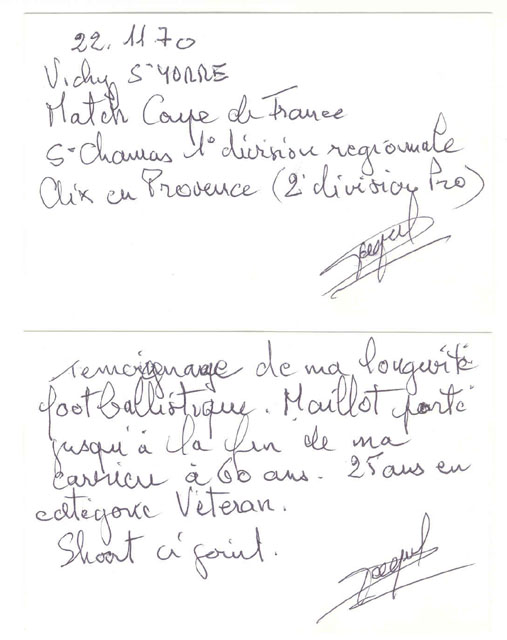 22.11 70
Vichy St YORRE
Match Coupe de France
St Chamas 1e division regionnale
Aix en Provence (2e division Pro)
Temoignage de ma longevité
footballistique. Maillot porté
jusqu'à la fin de ma
carriere à 60 ans. 25 ans en
categorie Véteran.
Short ci joint.